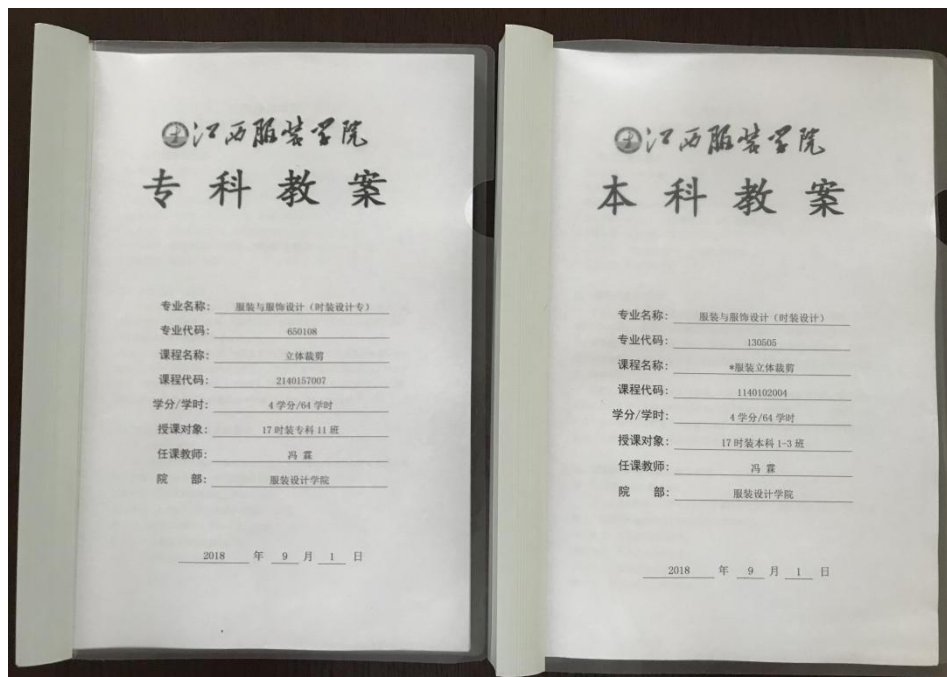 江西服装学院
专科教案
专业名称: 服装与服饰设计（时装设计专）
专业代码: 650108
课程名称: 立体裁剪
课程代码: 2140157007
学分/学时: 4学分/64学时
授课对象: 17时装专科11班
任课教师: 冯霖
院 部: 服装设计学院
2018 年 9 月 1 日
江西服装学院
本科教案
专业名称: 服装与服饰设计（时装设计）
专业代码: 130505
课程名称: *服装立体裁剪
课程代码: 1140102004
学分/学时: 4学分/64学时
授课对象: 17时装本科1-3班
任课教师: 冯霖
院 部: 服装设计学院
2018 年 9 月 1 日